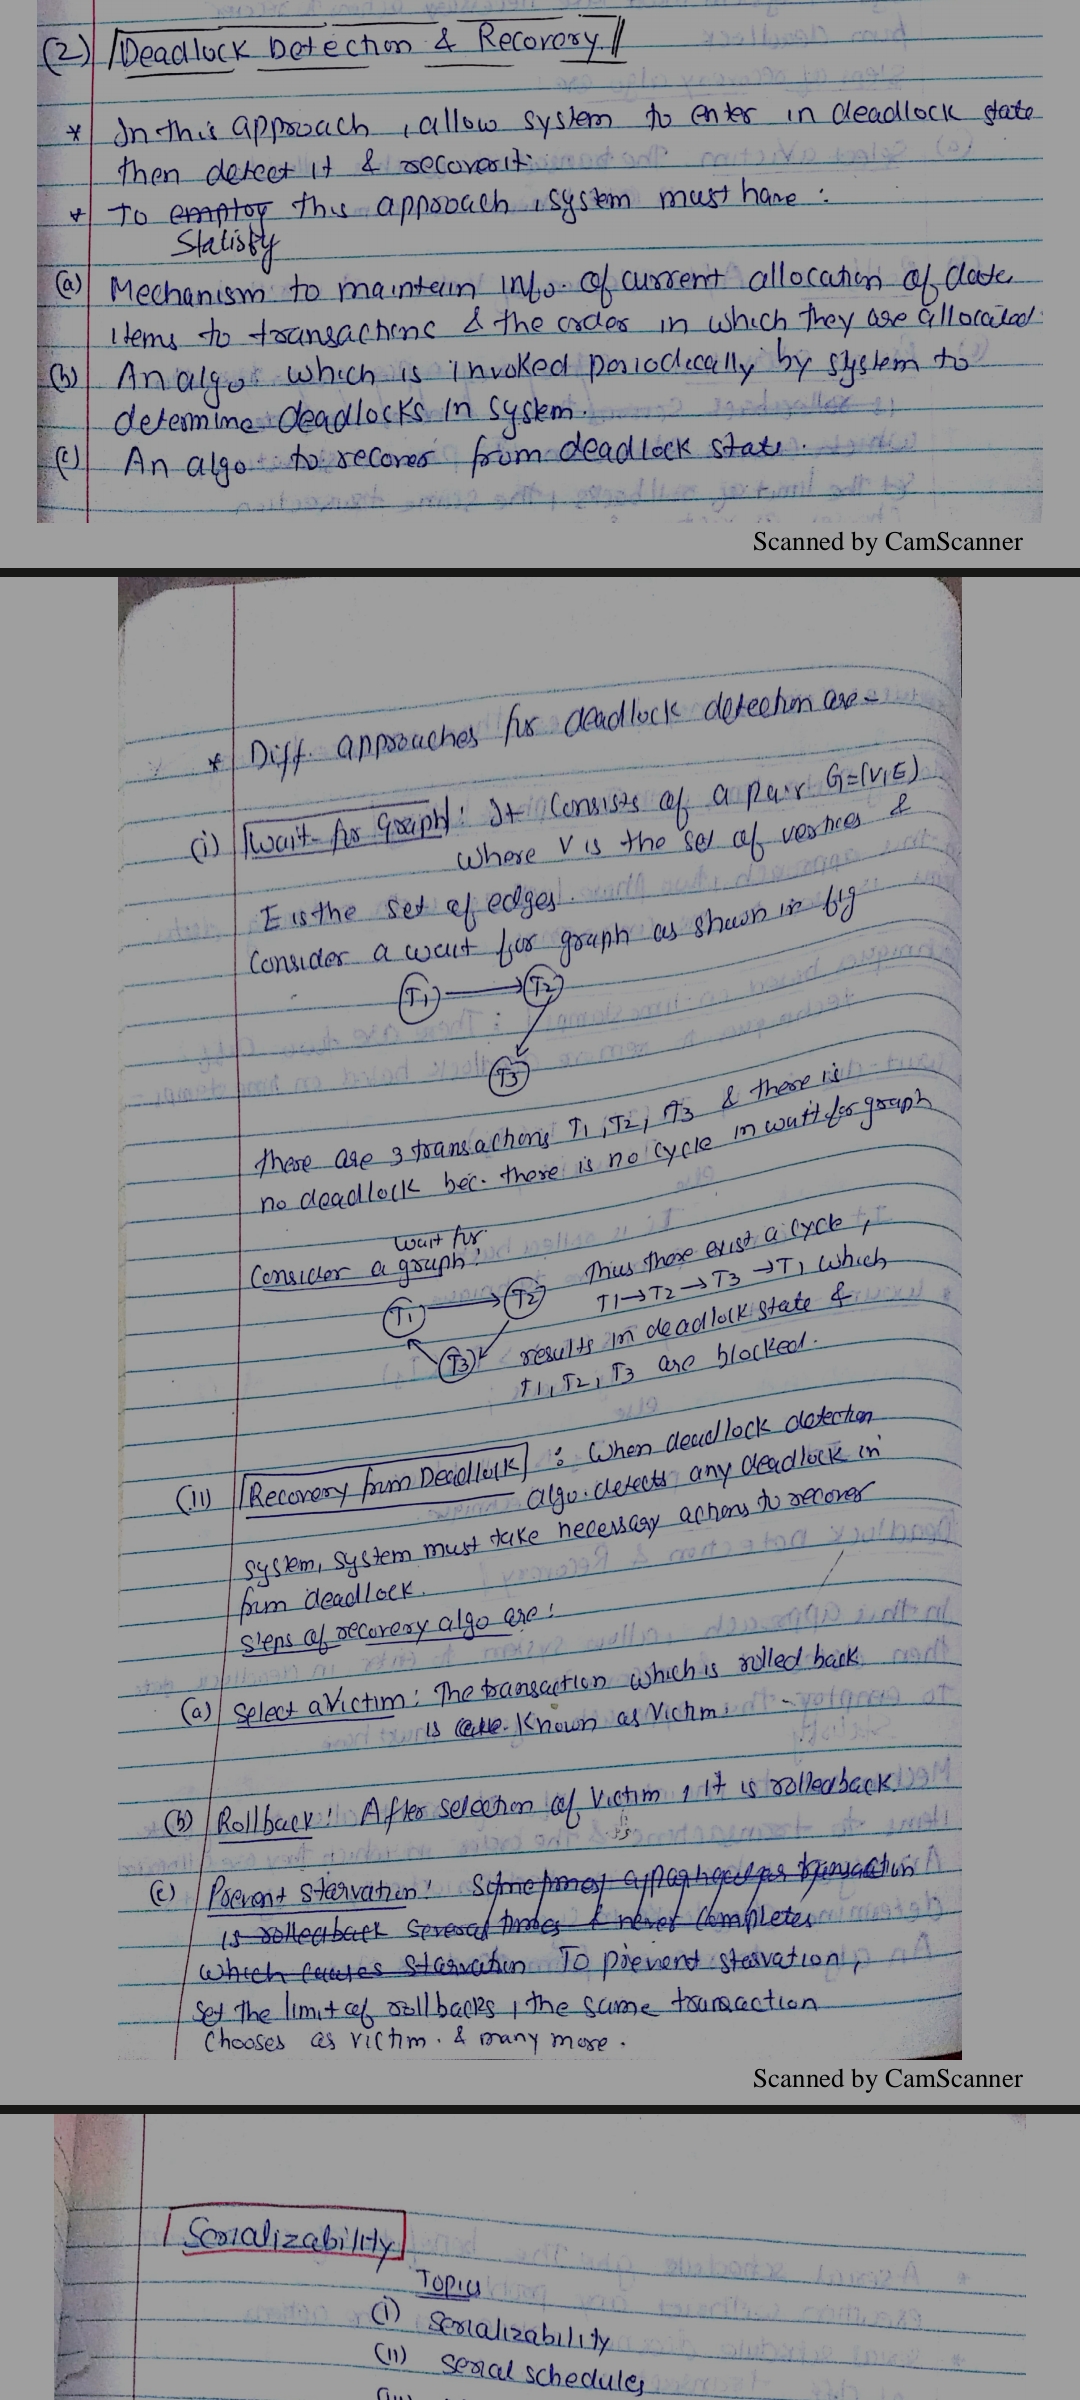 (2) Deadlock Detection & Recovery
* In this approach, allow system to enter in deadlock state
then detect it & recover it.
* To employ this approach, system must have :
Statisfy
(a) Mechanism to maintain info. of current allocation of data
items to transactions & the order in which they are allocated.
(b) An algo. which is invoked periodically by system to
determine deadlocks in system.
(c) An algo to recover from deadlock state.
Scanned by CamScanner
* Diff. approaches for deadlock detection are -
(i) Wait-for Graph : It consists of a pair G=(V,E)
where V is the set of vertices &
E is the set of edges.
Consider a wait for graph as shown in fig
T1 T2
T3
there are 3 transactions T1, T2, T3 & there is
no deadlock bec. there is no cycle in wait for graph
wait for
Consider a graph :
T1 T2 Thus there exist a cycle,
T1→T2→T3→T1 which
T3 results in deadlock state &
T1, T2, T3 are blocked.
(ii) Recovery from Deadlock : When deadlock detection
algo. detects any deadlock in
system, system must take necessary actions to recover
from deadlock.
Steps of recovery algo are :
(a) Select a Victim : The transaction which is rolled back
is known as Victim.
(b) Rollback : After selection of Victim, it is rolledback.
(c) Prevent Starvation : Sometimes transaction
is rolledback several times & never completes
which causes starvation To prevent starvation,
set the limit of rollbacks, the same transaction
Chooses as victim. & many more.
Scanned by CamScanner
Serializability
Topics
(i) Serializability
(ii) Serial schedules